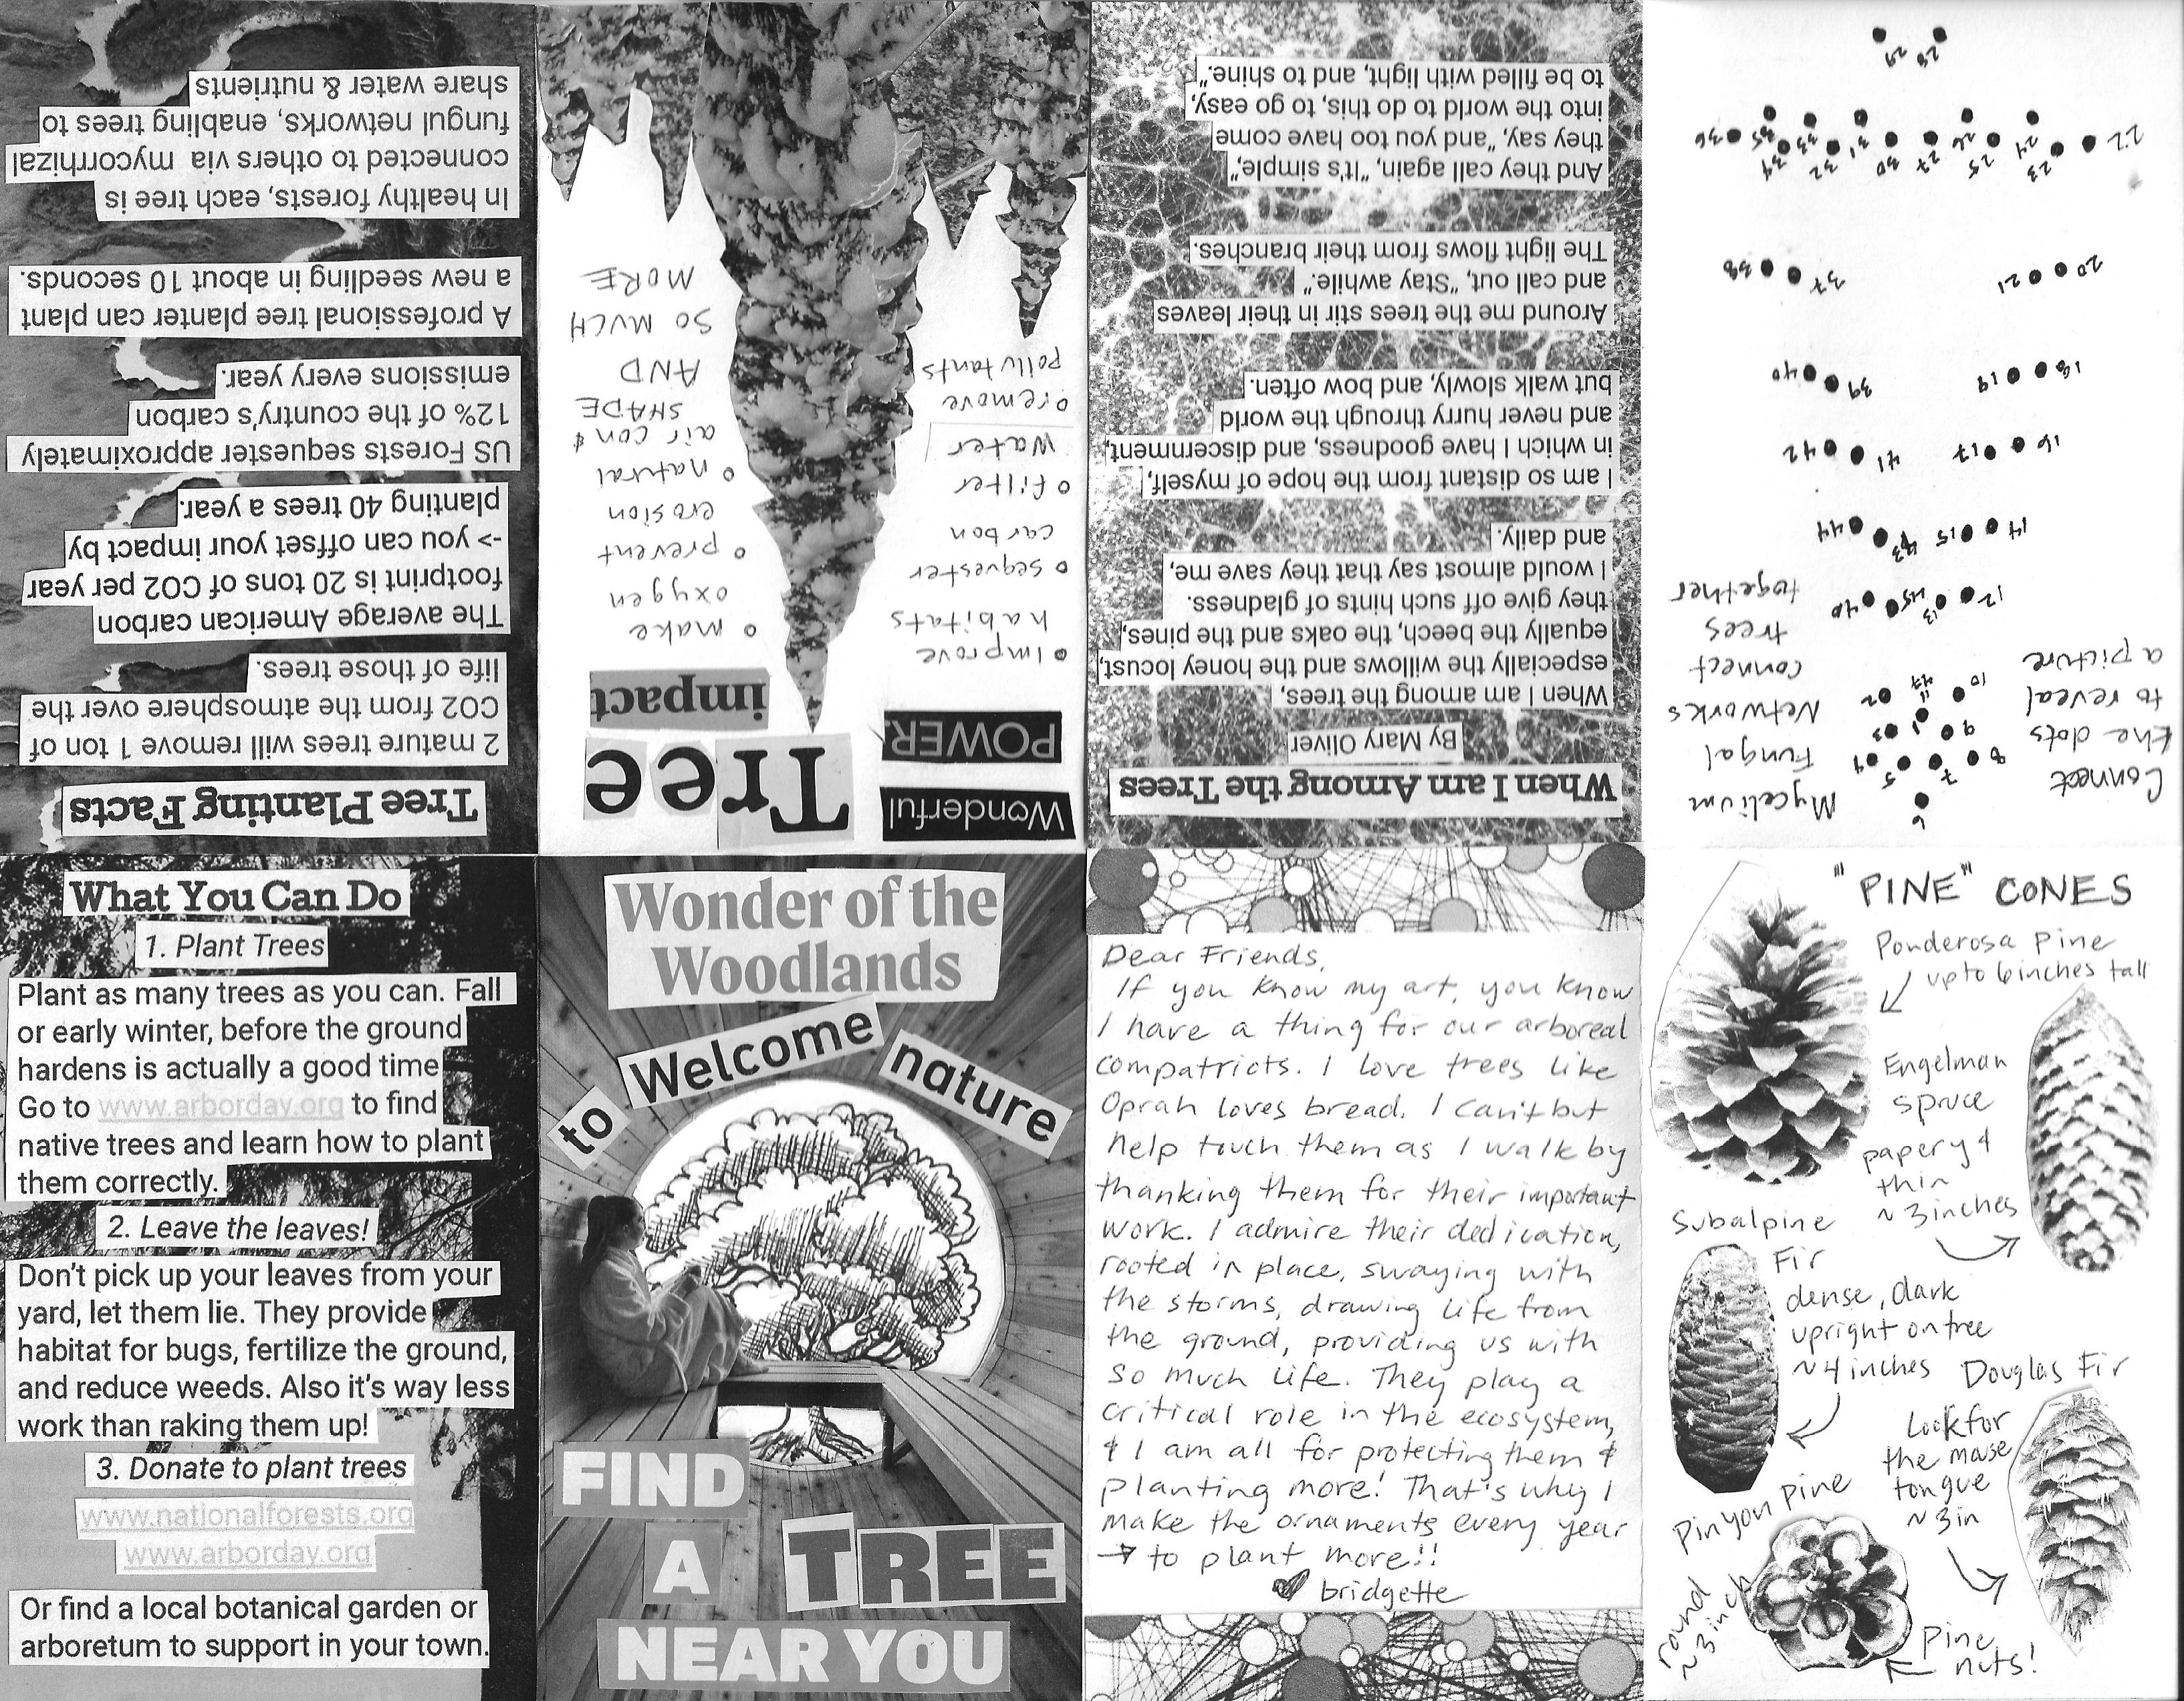 Tree Planting Facts
2 mature trees will remove 1 ton of
CO2 from the atmosphere over the
life of those trees.
The average American carbon
footprint is 20 tons of CO2 per year
-> you can offset your impact by
planting 40 trees a year.
US Forests sequester approximately
12% of the country's carbon
emissions every year.
A professional tree planter can plant
a new seedling in about 10 seconds.
In healthy forests, each tree is
connected to others via mycorrhizal
fungul networks, enabling trees to
share water & nutrients
Wonderful
POWER.
Tree
impact
• Improve
habitats
• sequester
carbon
• filter
water
• remove
pollutants
• make
oxygen
• prevent
erosion
• natural
air con &
SHADE
AND
SO MUCH
MORE
When I am Among the Trees
By Mary Oliver
When I am among the trees,
especially the willows and the honey locust,
equally the beech, the oaks and the pines,
they give off such hints of gladness.
I would almost say that they save me,
and daily.
I am so distant from the hope of myself,
in which I have goodness, and discernment,
and never hurry through the world
but walk slowly, and bow often.
Around me the trees stir in their leaves
and call out, "Stay awhile."
The light flows from their branches.
And they call again, "It's simple,"
they say, "and you too have come
into the world to do this, to go easy,
to be filled with light, and to shine."
Connect
the dots
to reveal
a picture
Mycelium
Fungal
Networks
connect
trees
together
6
8 7 5 4
9 1 3
10 11 47 2
12 13 45 46
14 15 43 44
16 17 41 42
18 19 39 40
20 21 37 38
22 23 24 25 26 27 30 31 32 33 34 35 36
28 29
What You Can Do
1. Plant Trees
Plant as many trees as you can. Fall
or early winter, before the ground
hardens is actually a good time
Go to www.arborday.org to find
native trees and learn how to plant
them correctly.
2. Leave the leaves!
Don't pick up your leaves from your
yard, let them lie. They provide
habitat for bugs, fertilize the ground,
and reduce weeds. Also it's way less
work than raking them up!
3. Donate to plant trees
www.nationalforests.org
www.arborday.org
Or find a local botanical garden or
arboretum to support in your town.
Wonder of the
Woodlands
to Welcome nature
FIND
A TREE
NEAR YOU
Dear Friends,
If you know my art, you know
I have a thing for our arboreal
compatricts. I love trees like
Oprah loves bread. I can't but
help touch them as I walk by
thanking them for their important
work. I admire their dedication,
rooted in place, swaying with
the storms, drawing life from
the ground, providing us with
so much life. They play a
critical role in the ecosystem,
& I am all for protecting them &
planting more! That's why I
make the ornaments every year
→ to plant more!!
♥ bridgette
"PINE" CONES
Ponderosa Pine
up to 6 inches tall
Engelman
spruce
papery &
thin
~ 3 inches
Subalpine
Fir
dense, dark
upright on tree
~ 4 inches
Douglas Fir
Look for
the mouse
tongue
~ 3 in
Pinyon Pine
round
~ 3 inch
Pine
nuts!